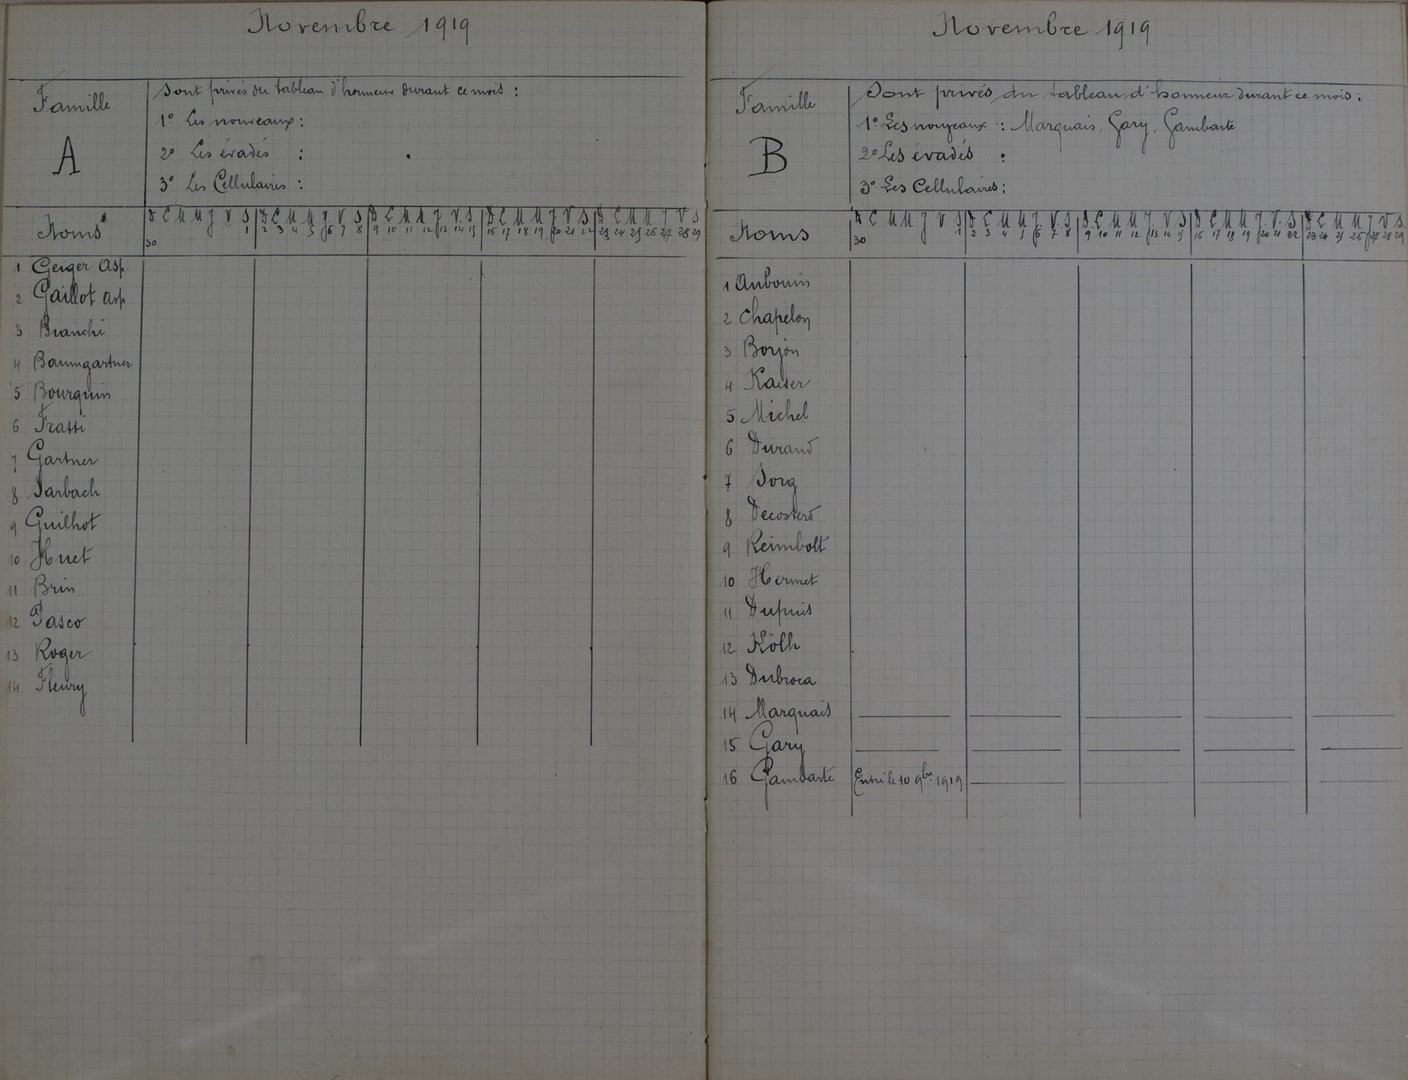 Novembre 1919
Famille
A
Sont privés du tableau d'honneur durant ce mois :
1° Les nouveaux :
2° Les évadés :
3° Les Cellulaires :
Noms
D L M M J V S D L M M J V S D L M M J V S D L M M J V S D L M M J V S
30 1 2 3 4 5 6 7 8 9 10 11 12 13 14 15 16 17 18 19 20 21 22 23 24 25 26 27 28 29
1 Geiger Asp.
2 Gaillot Asp
3 Bianchi
4 Baumgartner
5 Bourquin
6 Frassi
7 Gartner
8 Sarbach
9 Guilhot
10 Huet
11 Brin
12 Pasco
13 Roger
14 Fleury
Novembre 1919
Famille
B
Sont privés du tableau d'honneur durant ce mois :
1° Les nouveaux : Marquais, Gary, Gambarte
2° Les évadés :
3° Les Cellulaires :
Noms
D L M M J V S D L M M J V S D L M M J V S D L M M J V S D L M M J V S
30 1 2 3 4 5 6 7 8 9 10 11 12 13 14 15 16 17 18 19 20 21 22 23 24 25 26 27 28 29
1 Aubouin
2 Chapelon
3 Borjon
4 Kaiser
5 Michel
6 Durand
7 Sorg
8 Decosterd
9 Reimbolt
10 Hermet
11 Dupuis
12 Kölh
13 Dubroca
14 Marquais
15 Gary
16 Gambarte Entré le 10 9bre 1919